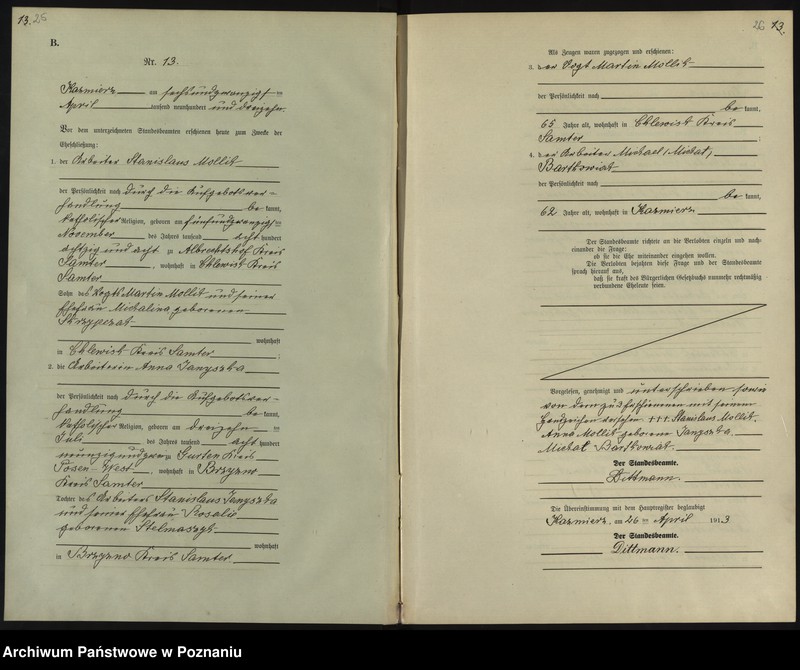 13. 26
B.
Nr. 13.
Kazmierz am sechsundzwanzigsten
April tausend neunhundert und dreizehn.
Vor dem unterzeichneten Standesbeamten erschienen heute zum Zwecke der
Eheschließung:
1. der Arbeiter Stanislaus Mollik
der Persönlichkeit nach durch die Aufgebotsver-
handlung be kannt,
katholischer Religion, geboren am fünfundzwanzigsten
November des Jahres tausend acht hundert
achtzig und acht zu Albrechtshof Kreis
Samter, wohnhaft in Chlewisk Kreis
Samter
Sohn des Vogts Martin Mollik und seiner
Ehefrau Michalina geborenen
Skrzypczak
wohnhaft
in Chlewisk Kreis Samter;
2. die Arbeiterin Anna Janyszka
der Persönlichkeit nach durch die Aufgebotsver-
handlung be kannt,
katholischer Religion, geboren am dreizehnten
Juli des Jahres tausend acht hundert
neunzig und zwei Gurten Kreis
Posen-West, wohnhaft in Brzezno
Kreis Samter
Tochter des Arbeiters Stanislaus Janyszka
und seiner Ehefrau Rosalie
geborenen Stelmaszyk
wohnhaft
in Brzezno Kreis Samter.
26 13.
Als Zeugen waren zugezogen und erschienen:
3. der Vogt Martin Mollik
der Persönlichkeit nach
be kannt,
65 Jahre alt, wohnhaft in Chlewisk Kreis
Samter;
4. der Arbeiter Michael (Michat)
Bartkowiak
der Persönlichkeit nach
be kannt,
62 Jahre alt, wohnhaft in Kazmierz
Der Standesbeamte richtete an die Verlobten einzeln und nach-
einander die Frage:
ob sie die Ehe miteinander eingehen wollen.
Die Verlobten bejahten diese Frage und der Standesbeamte
sprach hierauf aus,
daß sie kraft des Bürgerlichen Gesetzbuchs nunmehr rechtmäßig
verbundene Eheleute seien.
Vorgelesen, genehmigt und unterschrieben sowie
von dem zu 3 Erschienenen mit seinem
Handzeichen versehen +++ Stanislaus Mollik.
Anna Mollik geborene Janyszka.
Michat Bartkowiak.
Der Standesbeamte.
Dittmann.
Die Übereinstimmung mit dem Hauptregister beglaubigt
Kazmierz, am 26ten April 1913
Der Standesbeamte.
Dittmann.
Archiwum Państwowe w Poznaniu